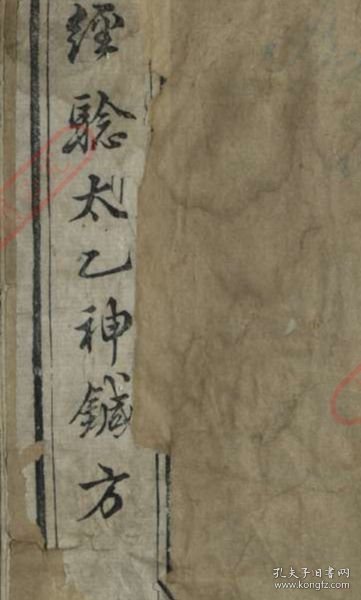 經驗太乙神鍼方
孔夫子旧书网
www.kongfz.com